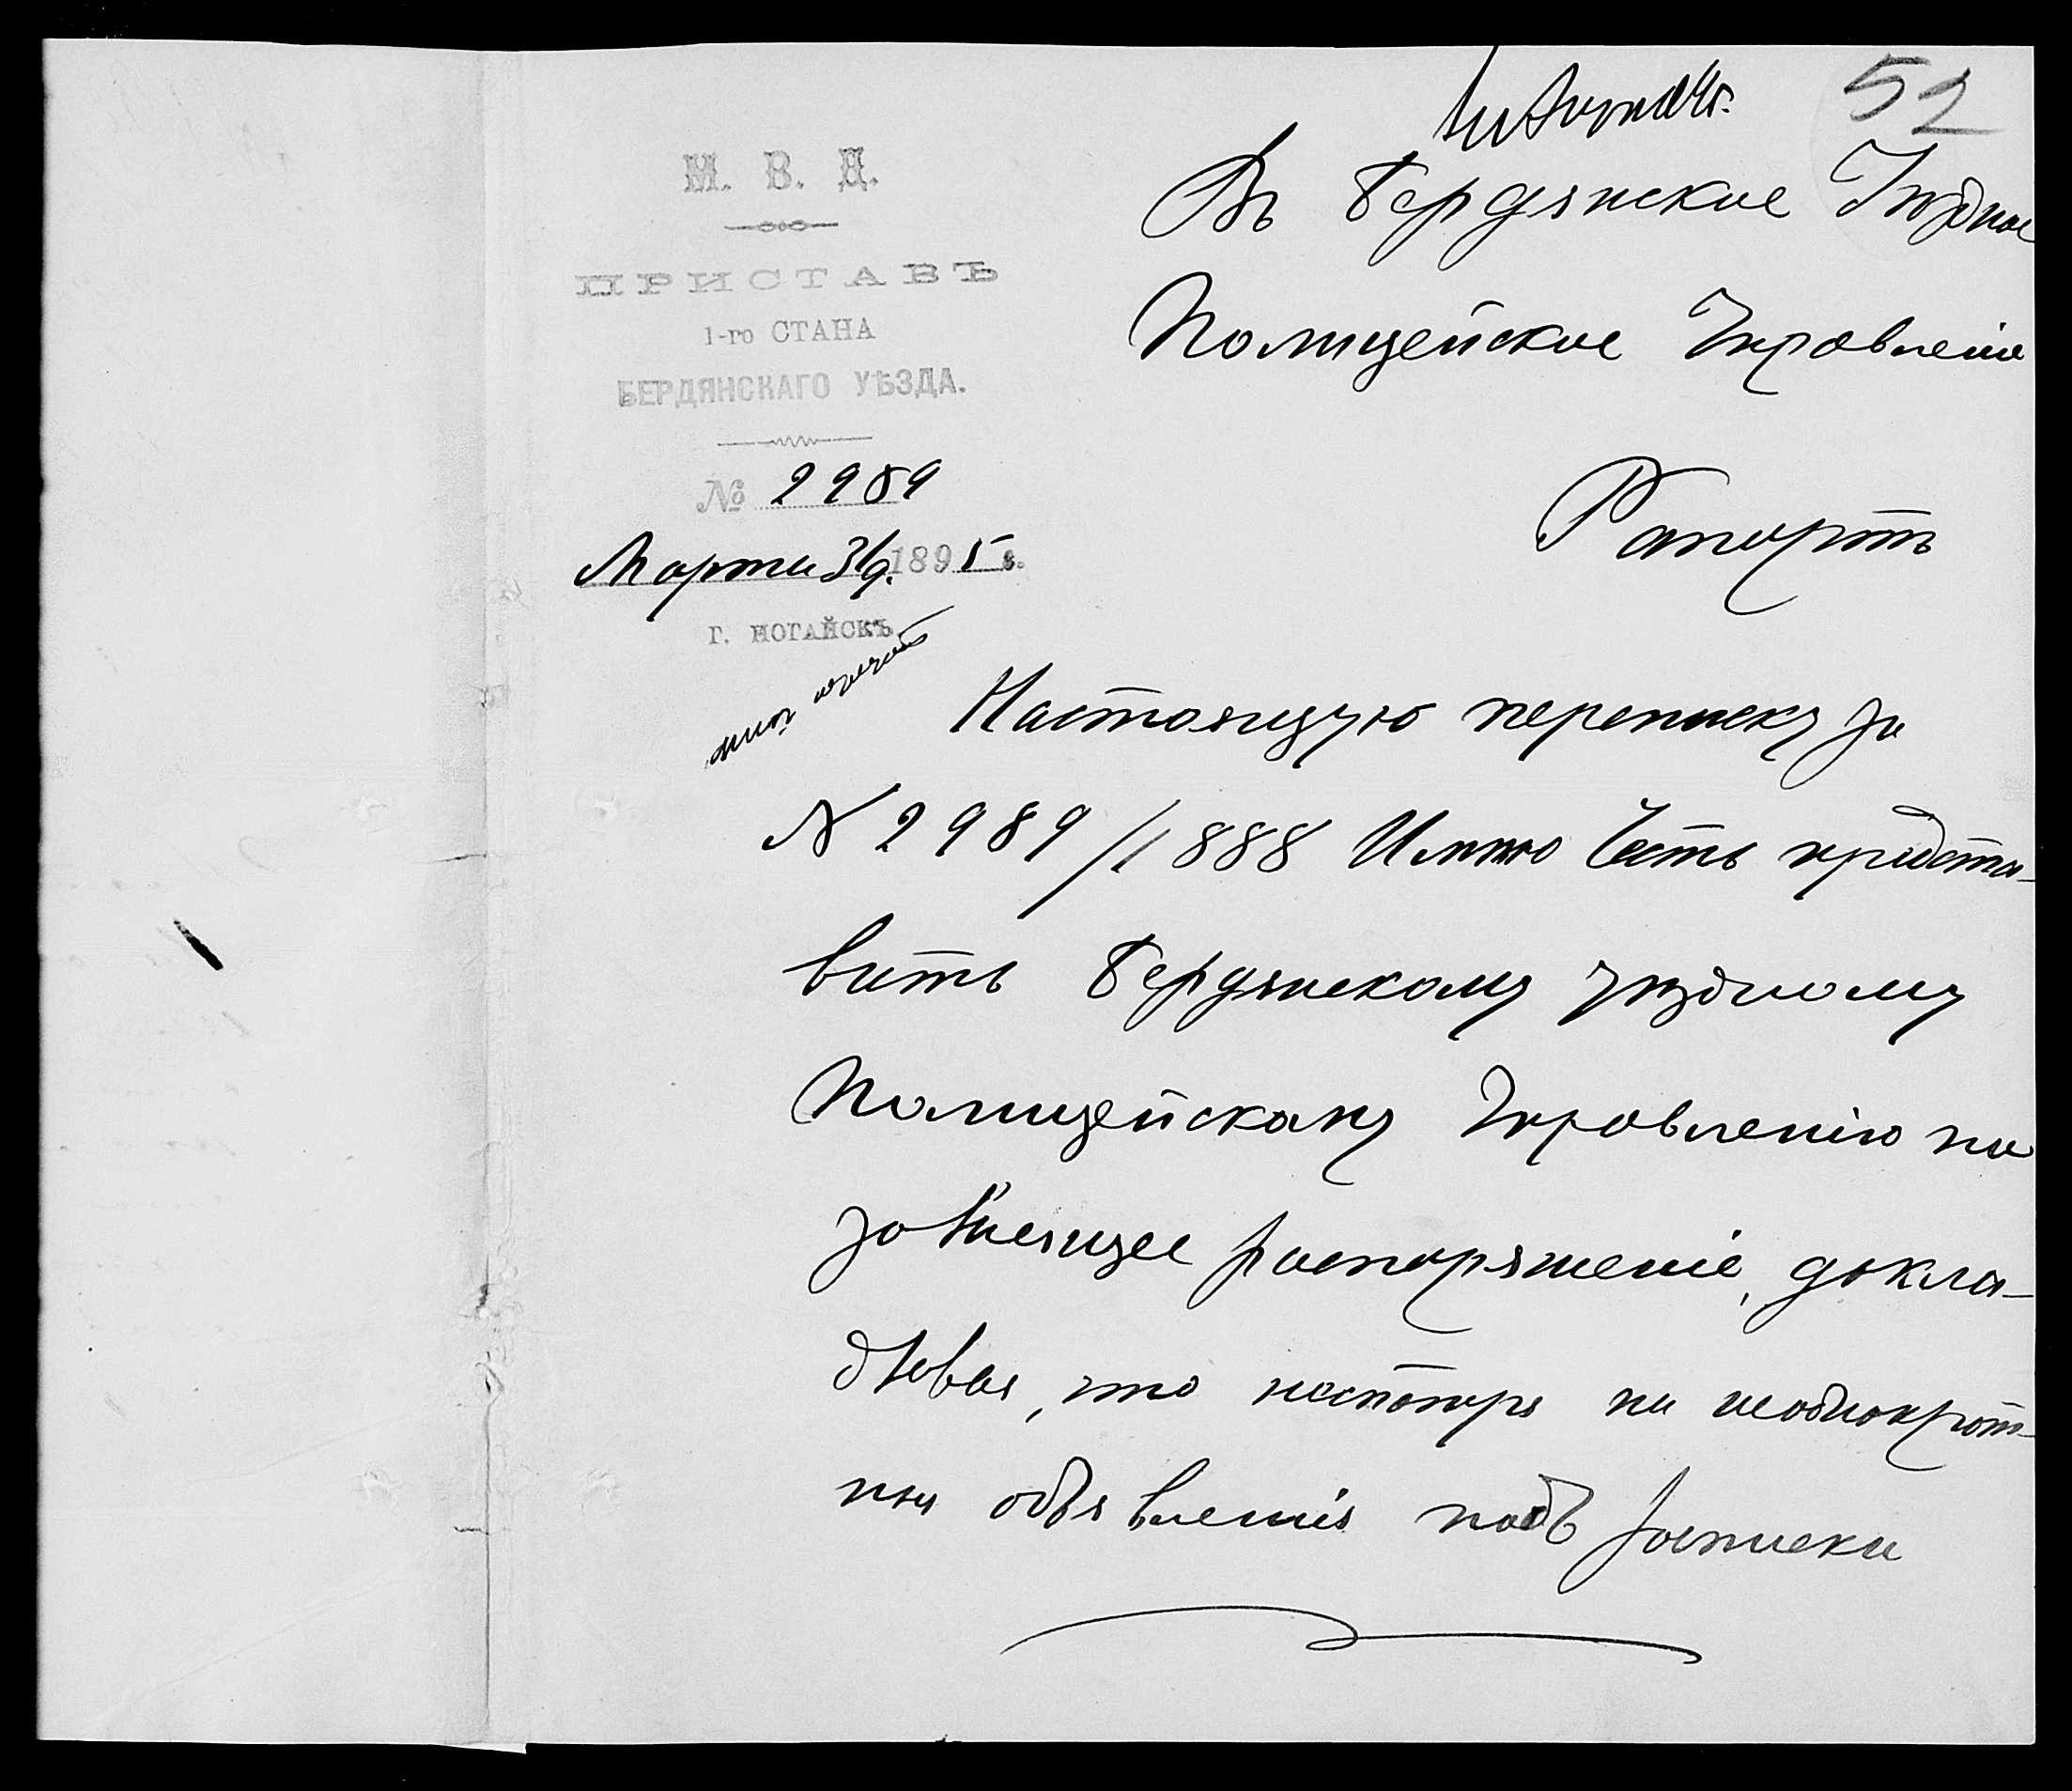 52
М. В. Д.
ПРИСТАВЪ
1-го СТАНА
БЕРДЯНСКАГО УѢЗДА.
№ 2989
Марта 31 д. 1895 г.
Г. НОГАЙСКЪ
Въ Бердянское Уѣздное
Полицейское Управленіе
Рапортъ
Настоящую переписку за
№ 2989/1888 Имѣю Честь предста-
вить Бердянскому уѣздному
Полицейскому Управленію на
зависящее распоряженіе, докла-
дывая, что несмотря на неоднократ-
ныя объявленія подъ росписки